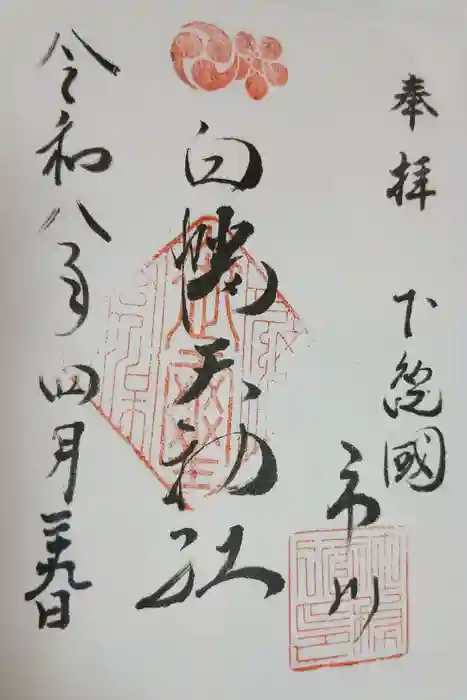 奉拝 下総國
市川
白幡天神社
令和八年四月二十九日